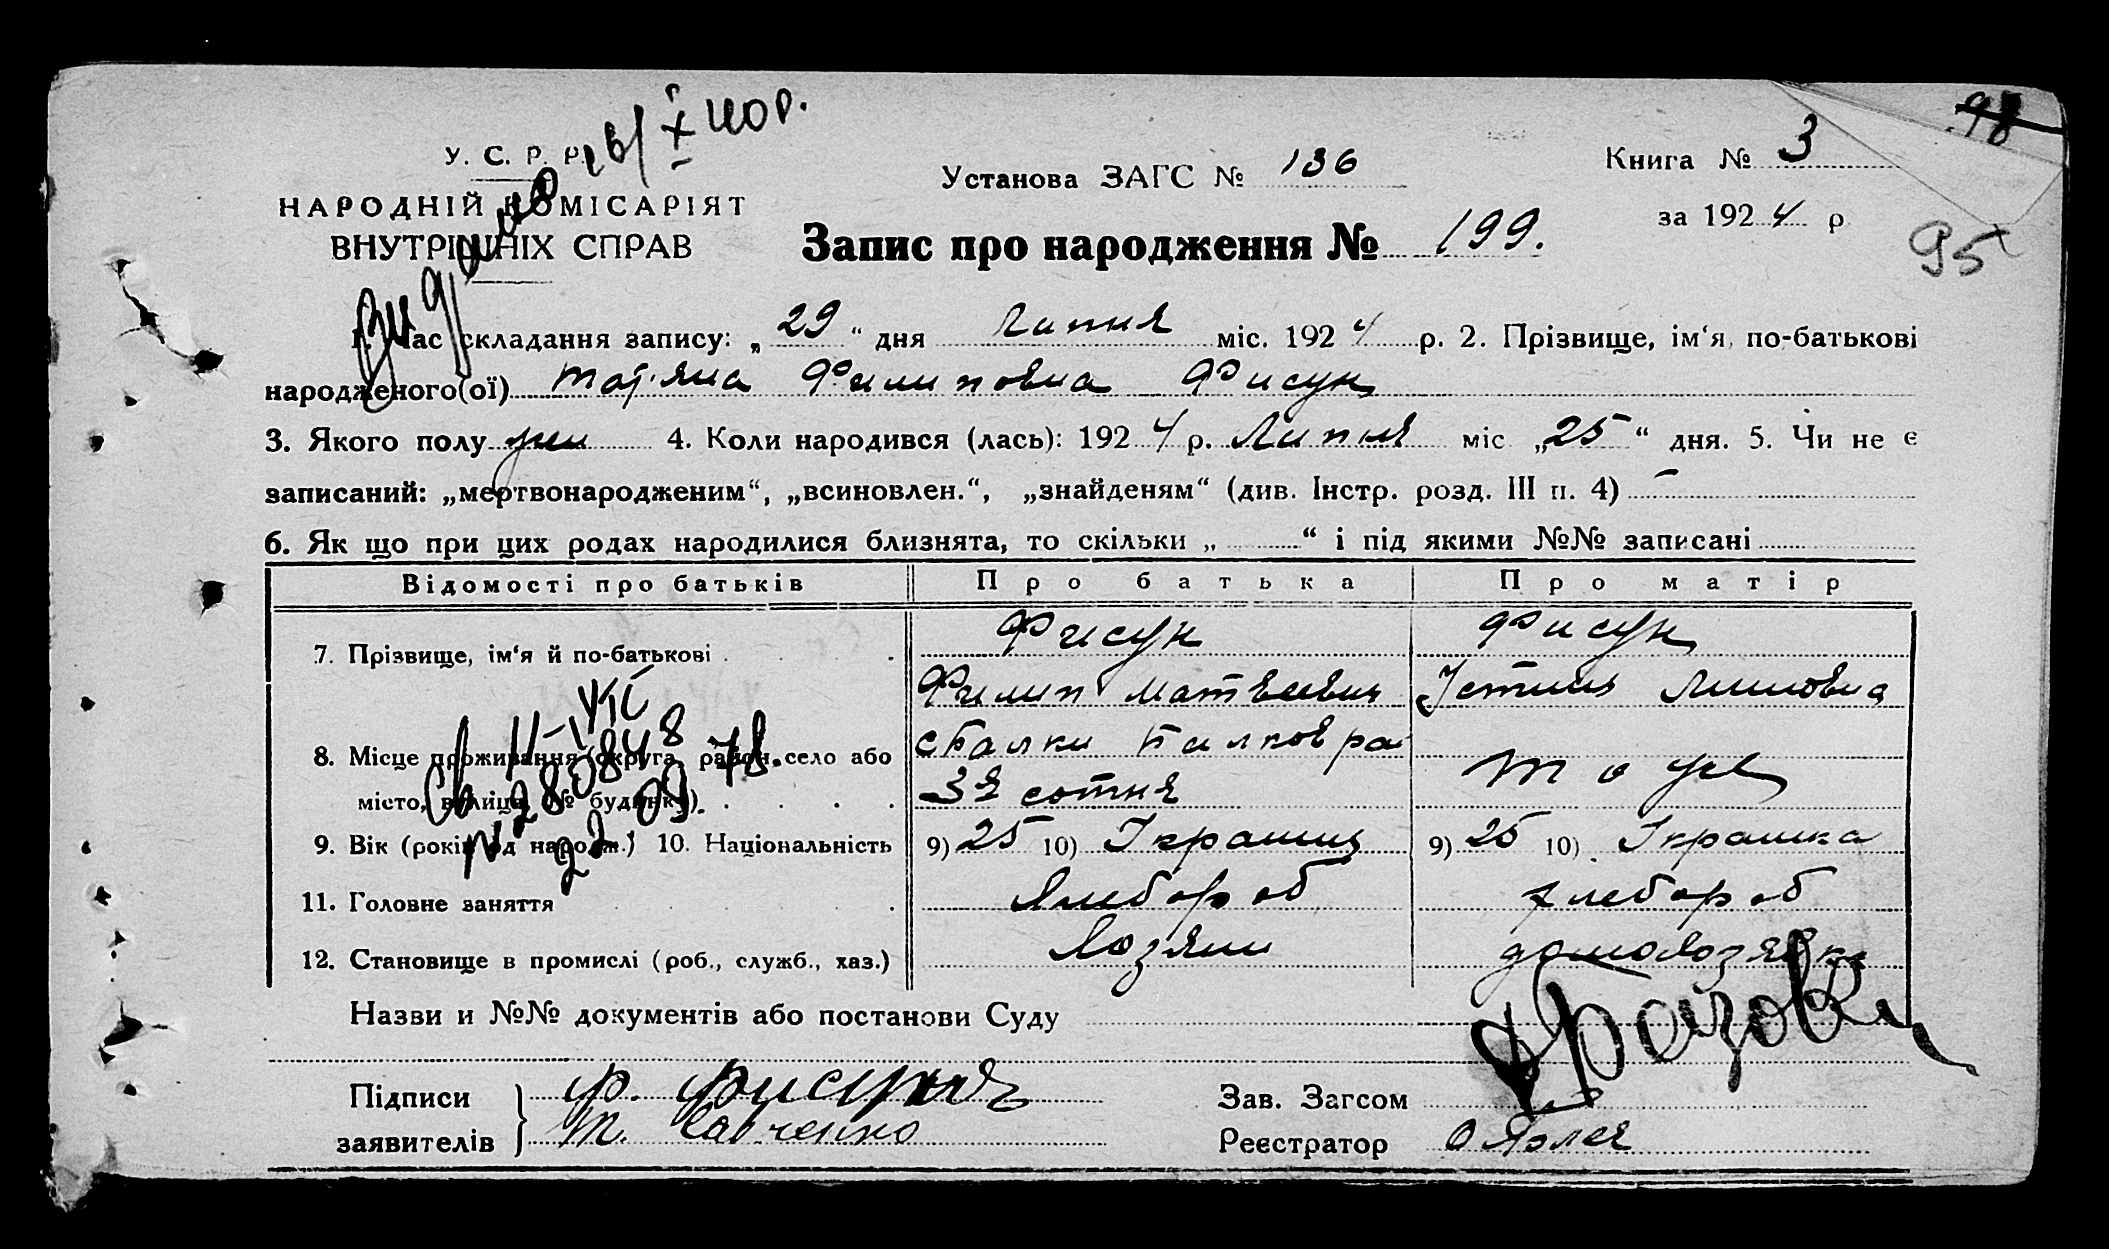 98
У. С. Р. Р.
НАРОДНІЙ КОМІСАРІЯТ
ВНУТРІШНІХ СПРАВ
Установа ЗАГС № 136
Книга № 3
за 1924 р
95
Запис про народження № 199.
1. Час складання запису: „29“ дня Липня міс. 1924 р. 2. Прізвище, ім‘я, по-батькові
народженого(ої) Тат‘яна Филиповна Фисун
3. Якого полу жін 4. Коли народився (лась): 1924 р. Липня міс „25“ дня. 5. Чи не є
записаний: „мертвонародженим“, „всиновлен.“, „знайденям“ (див. Інстр. розд. III п. 4) –
6. Як що при цих родах народилися близнята, то скільки „ “ і під якими №№ записані
Відомості про батьків Про батька Про матір
7. Прізвище, ім‘я й по-батькові Фисун Фисун
Филип Матвеевич Устиния
8. Місце проживання (округа, район, село або
місто, вулиця, № будинку) с Балки
3я сотня
Тоже
II-УК
№ 280848
22 09 78.
9. Вік (років од народж.) 10. Національність 9) 25 10) Українець 9) 25 10) Українка
11. Головне заняття Хлебороб хлебороб
12. Становище в промислі (роб., служб., хаз.) Хозяин домохозяйка
Назви и №№ документів або постанови Суду
Підписи заявителів
Ф. Фисун
Т. Савченко
Зав. Загсом
Реєстратор